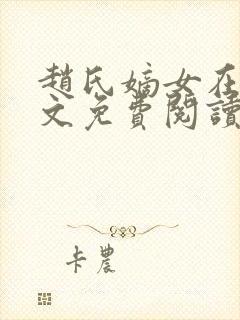 趙氏嫡女在
文免費閱讀
卡農